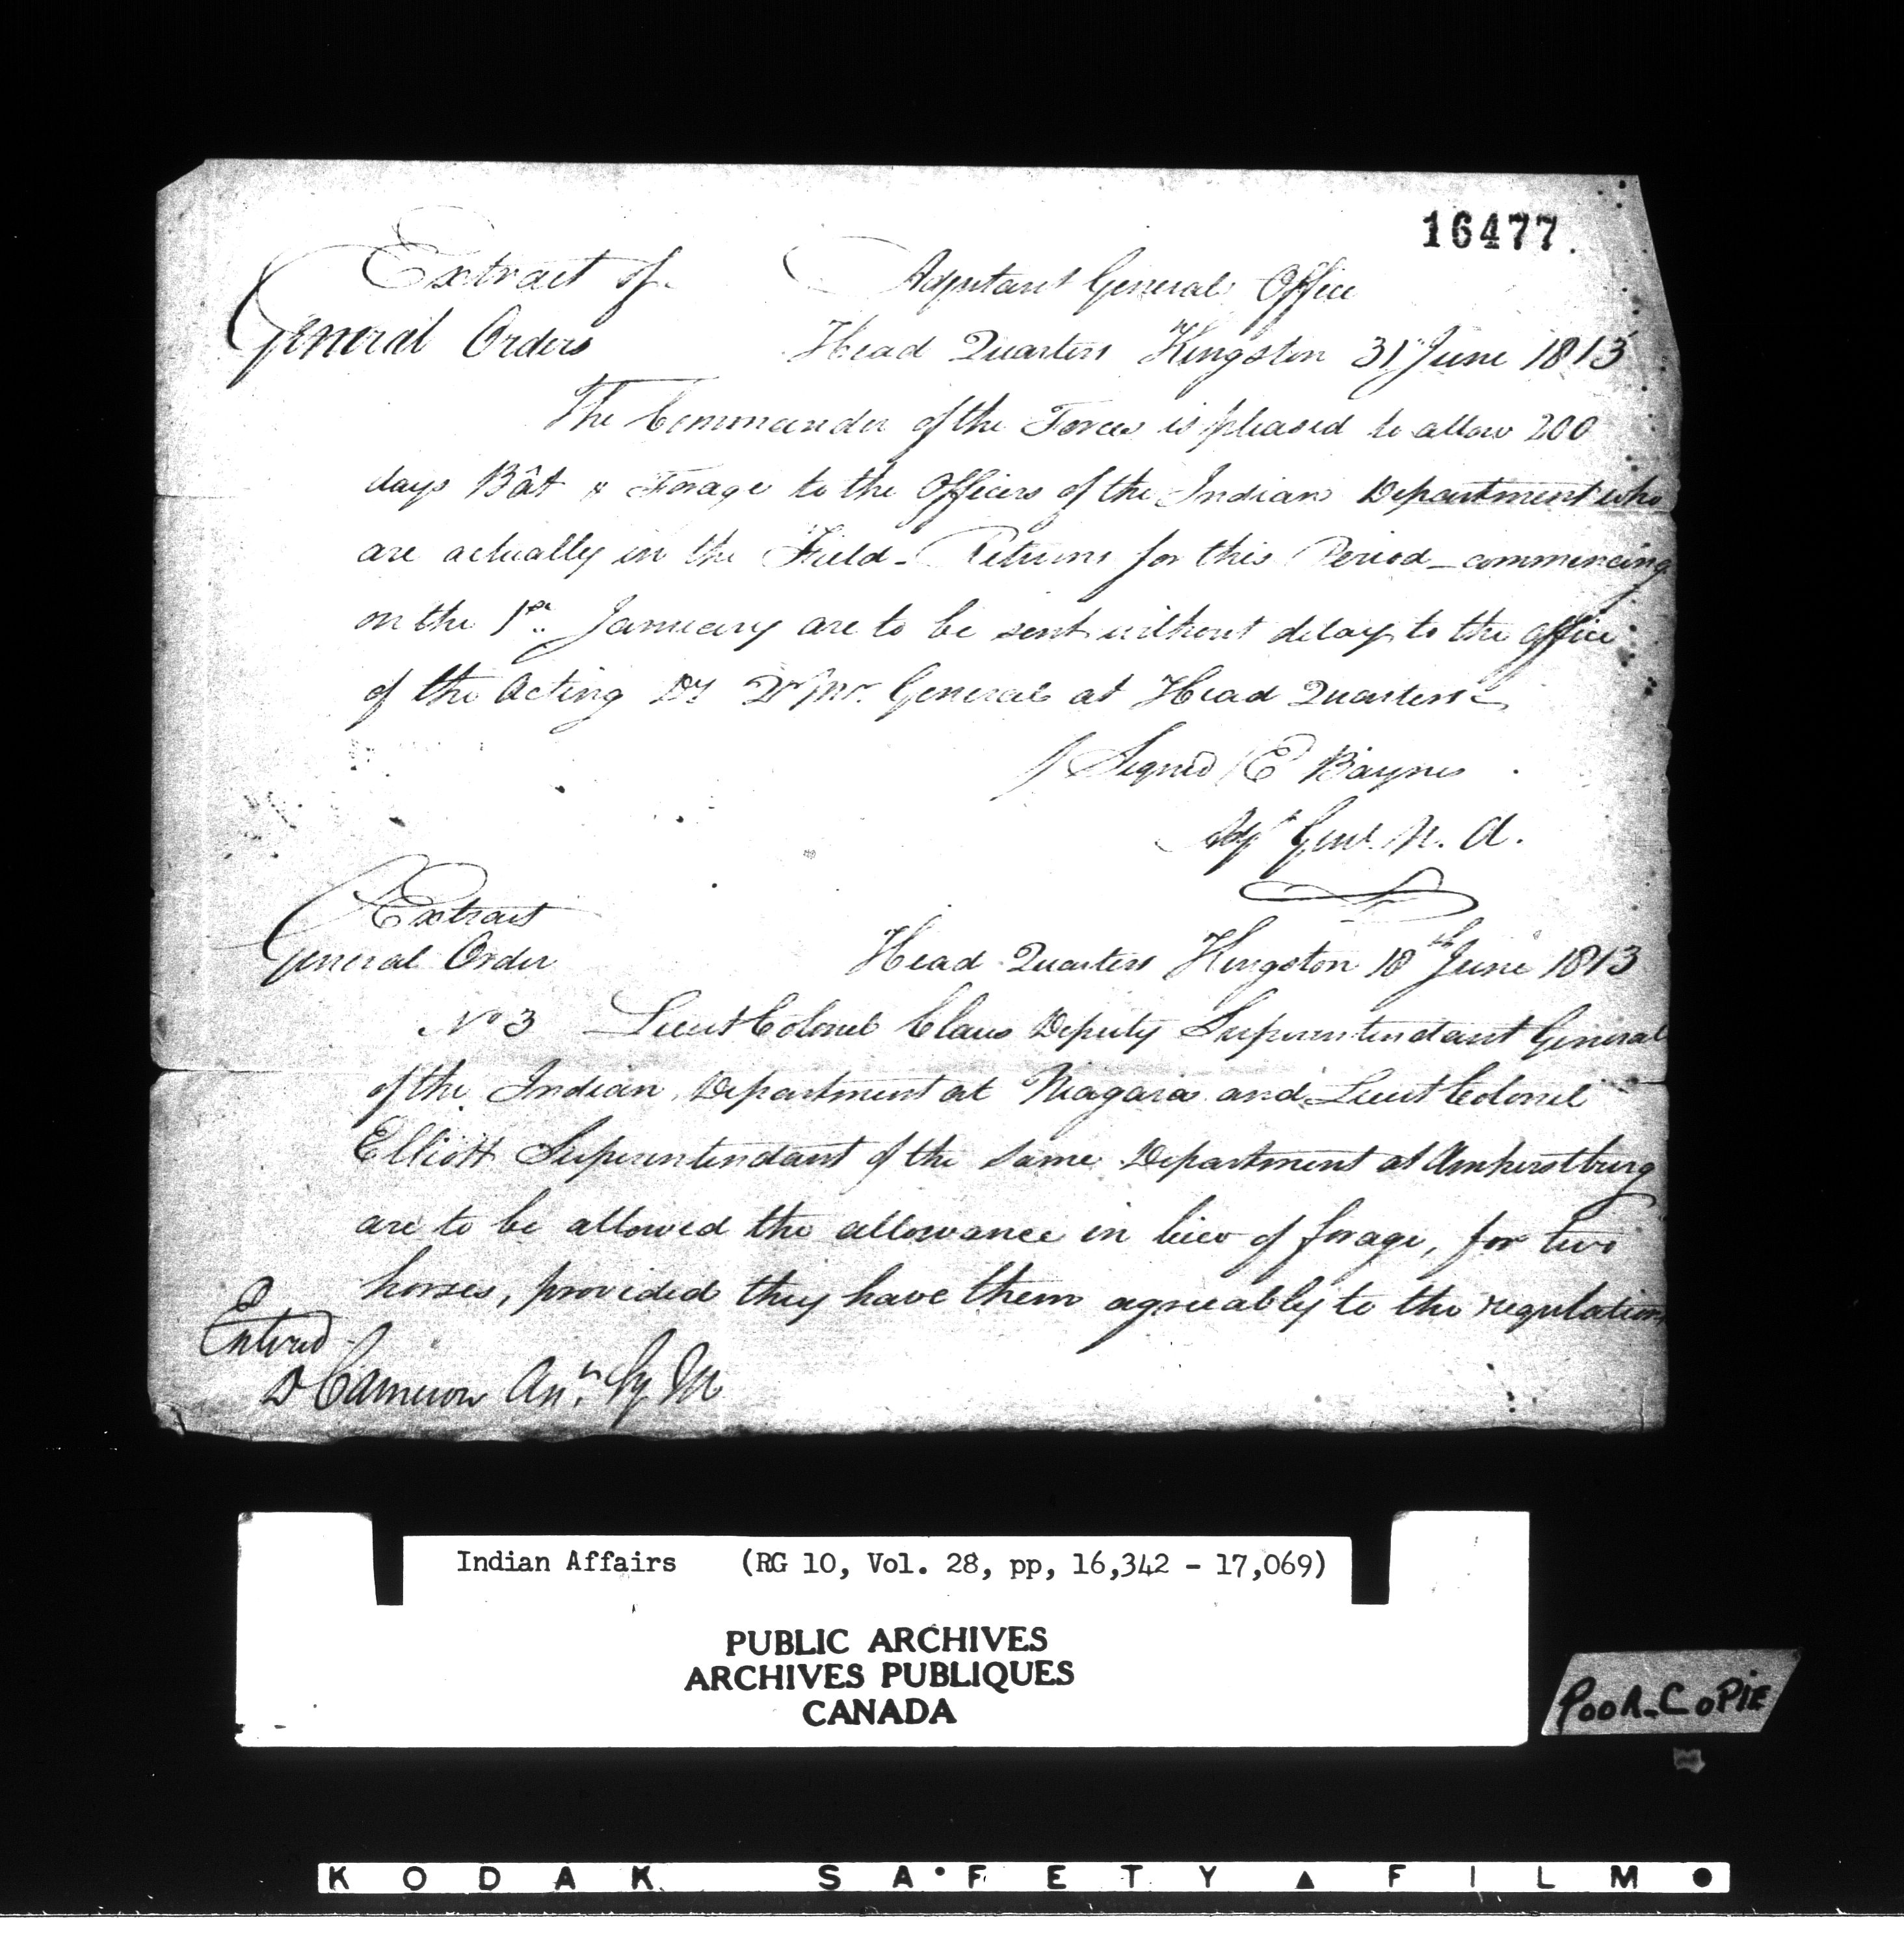 16477.
Extract of Adjutant General Office
General Orders Head Quarters Kingston 31 June 1813
The Commander of the Forces is pleased to allow 200
days Bât & Forage to the Officers of the Indian Department who
are actually in the Field - Returns for this Period - commencing
on the 1st January are to be sent without delay to the office
of the Acting Dy Qr Mr. General at Head Quarters -
Signed E Baynes
Adjt Genl N. A.
Extract
General Order Head Quarters Kingston 18th June 1813
No 3 Lieut Colonel Claus Deputy Superintendant General
of the Indian Department at Niagara and Lieut Colonel
Elliott Superintendant of the same Department at Amherstburg
are to be allowed the allowance in lieu of forage, for two
horses, provided they have them agreeably to the regulations
Entered
D Cameron
Indian Affairs (RG 10, Vol. 28, pp, 16,342 - 17,069)
PUBLIC ARCHIVES
ARCHIVES PUBLIQUES
CANADA
POOR-COPIE
KODAK SAFETY FILM